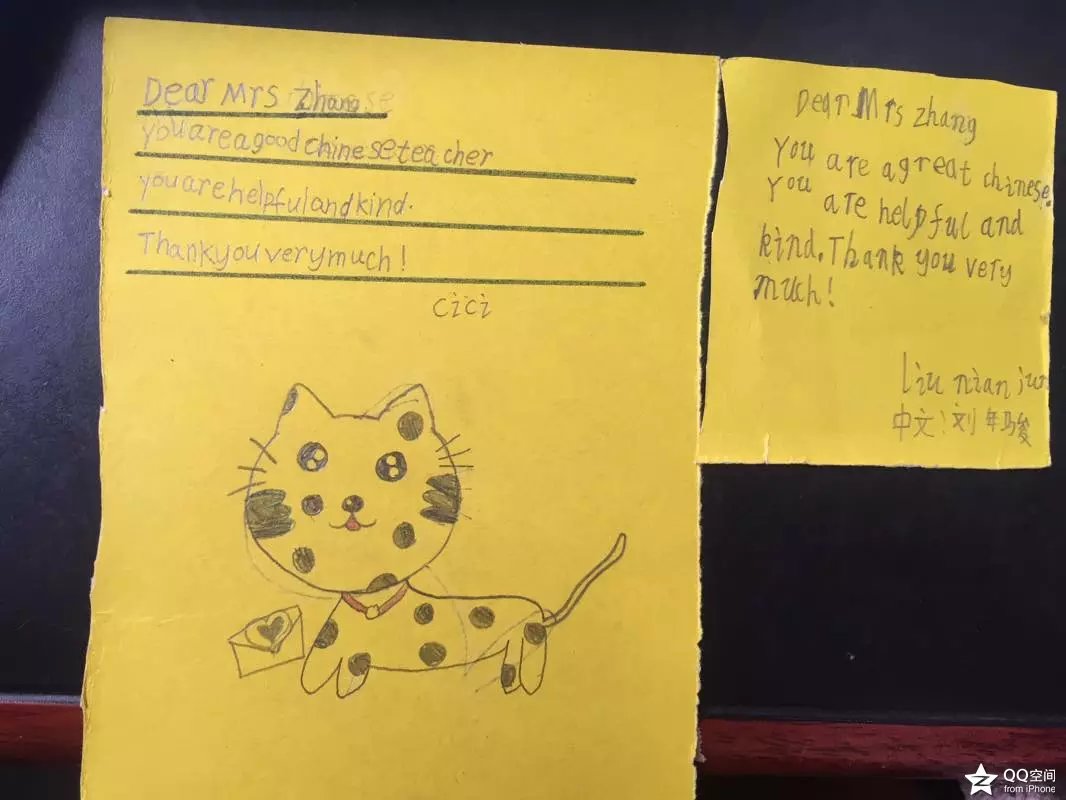 Dear Mrs Zhang
you are a good chinese teacher
you are helpful and kind.
Thank you very much!
cici
Dear Mrs Zhang
You are a great chinese.
You are helpful and
kind. Thank you very
much!
liu nian jun
中文:刘年骏
QQ空间
from iPhone